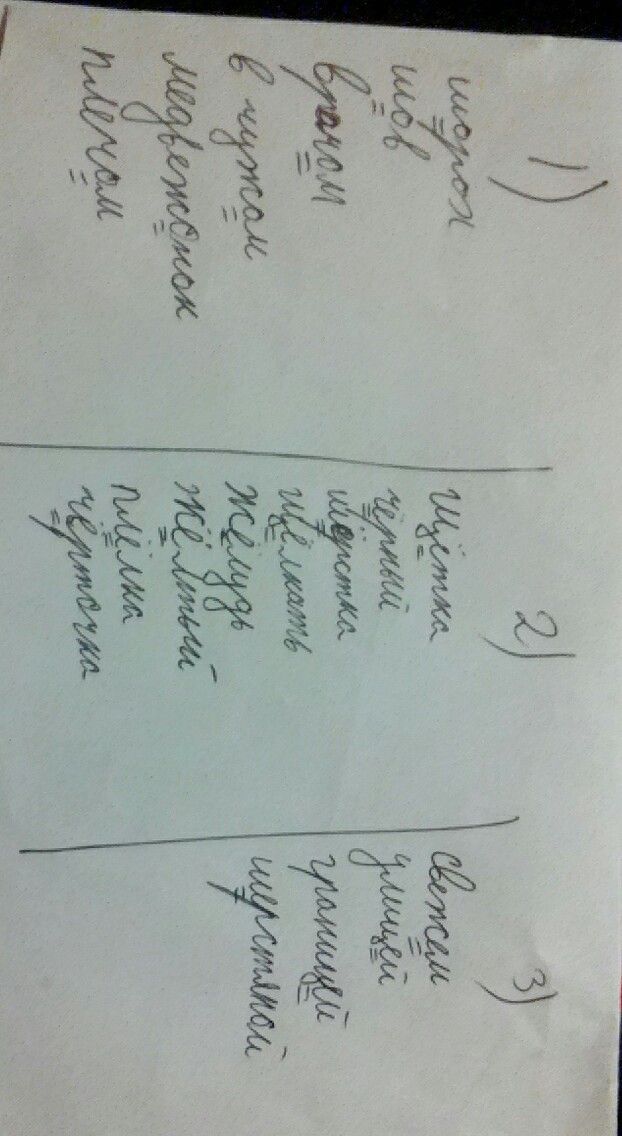 1)
шорох
шов
врачом
в чужом
медвежонок
плечом
2)
щётка
чёрный
шёрстка
щёлкать
жёлудь
жёлтый
плёлка
чёрточка
3)
свежем
улицей
границей
шерстяной